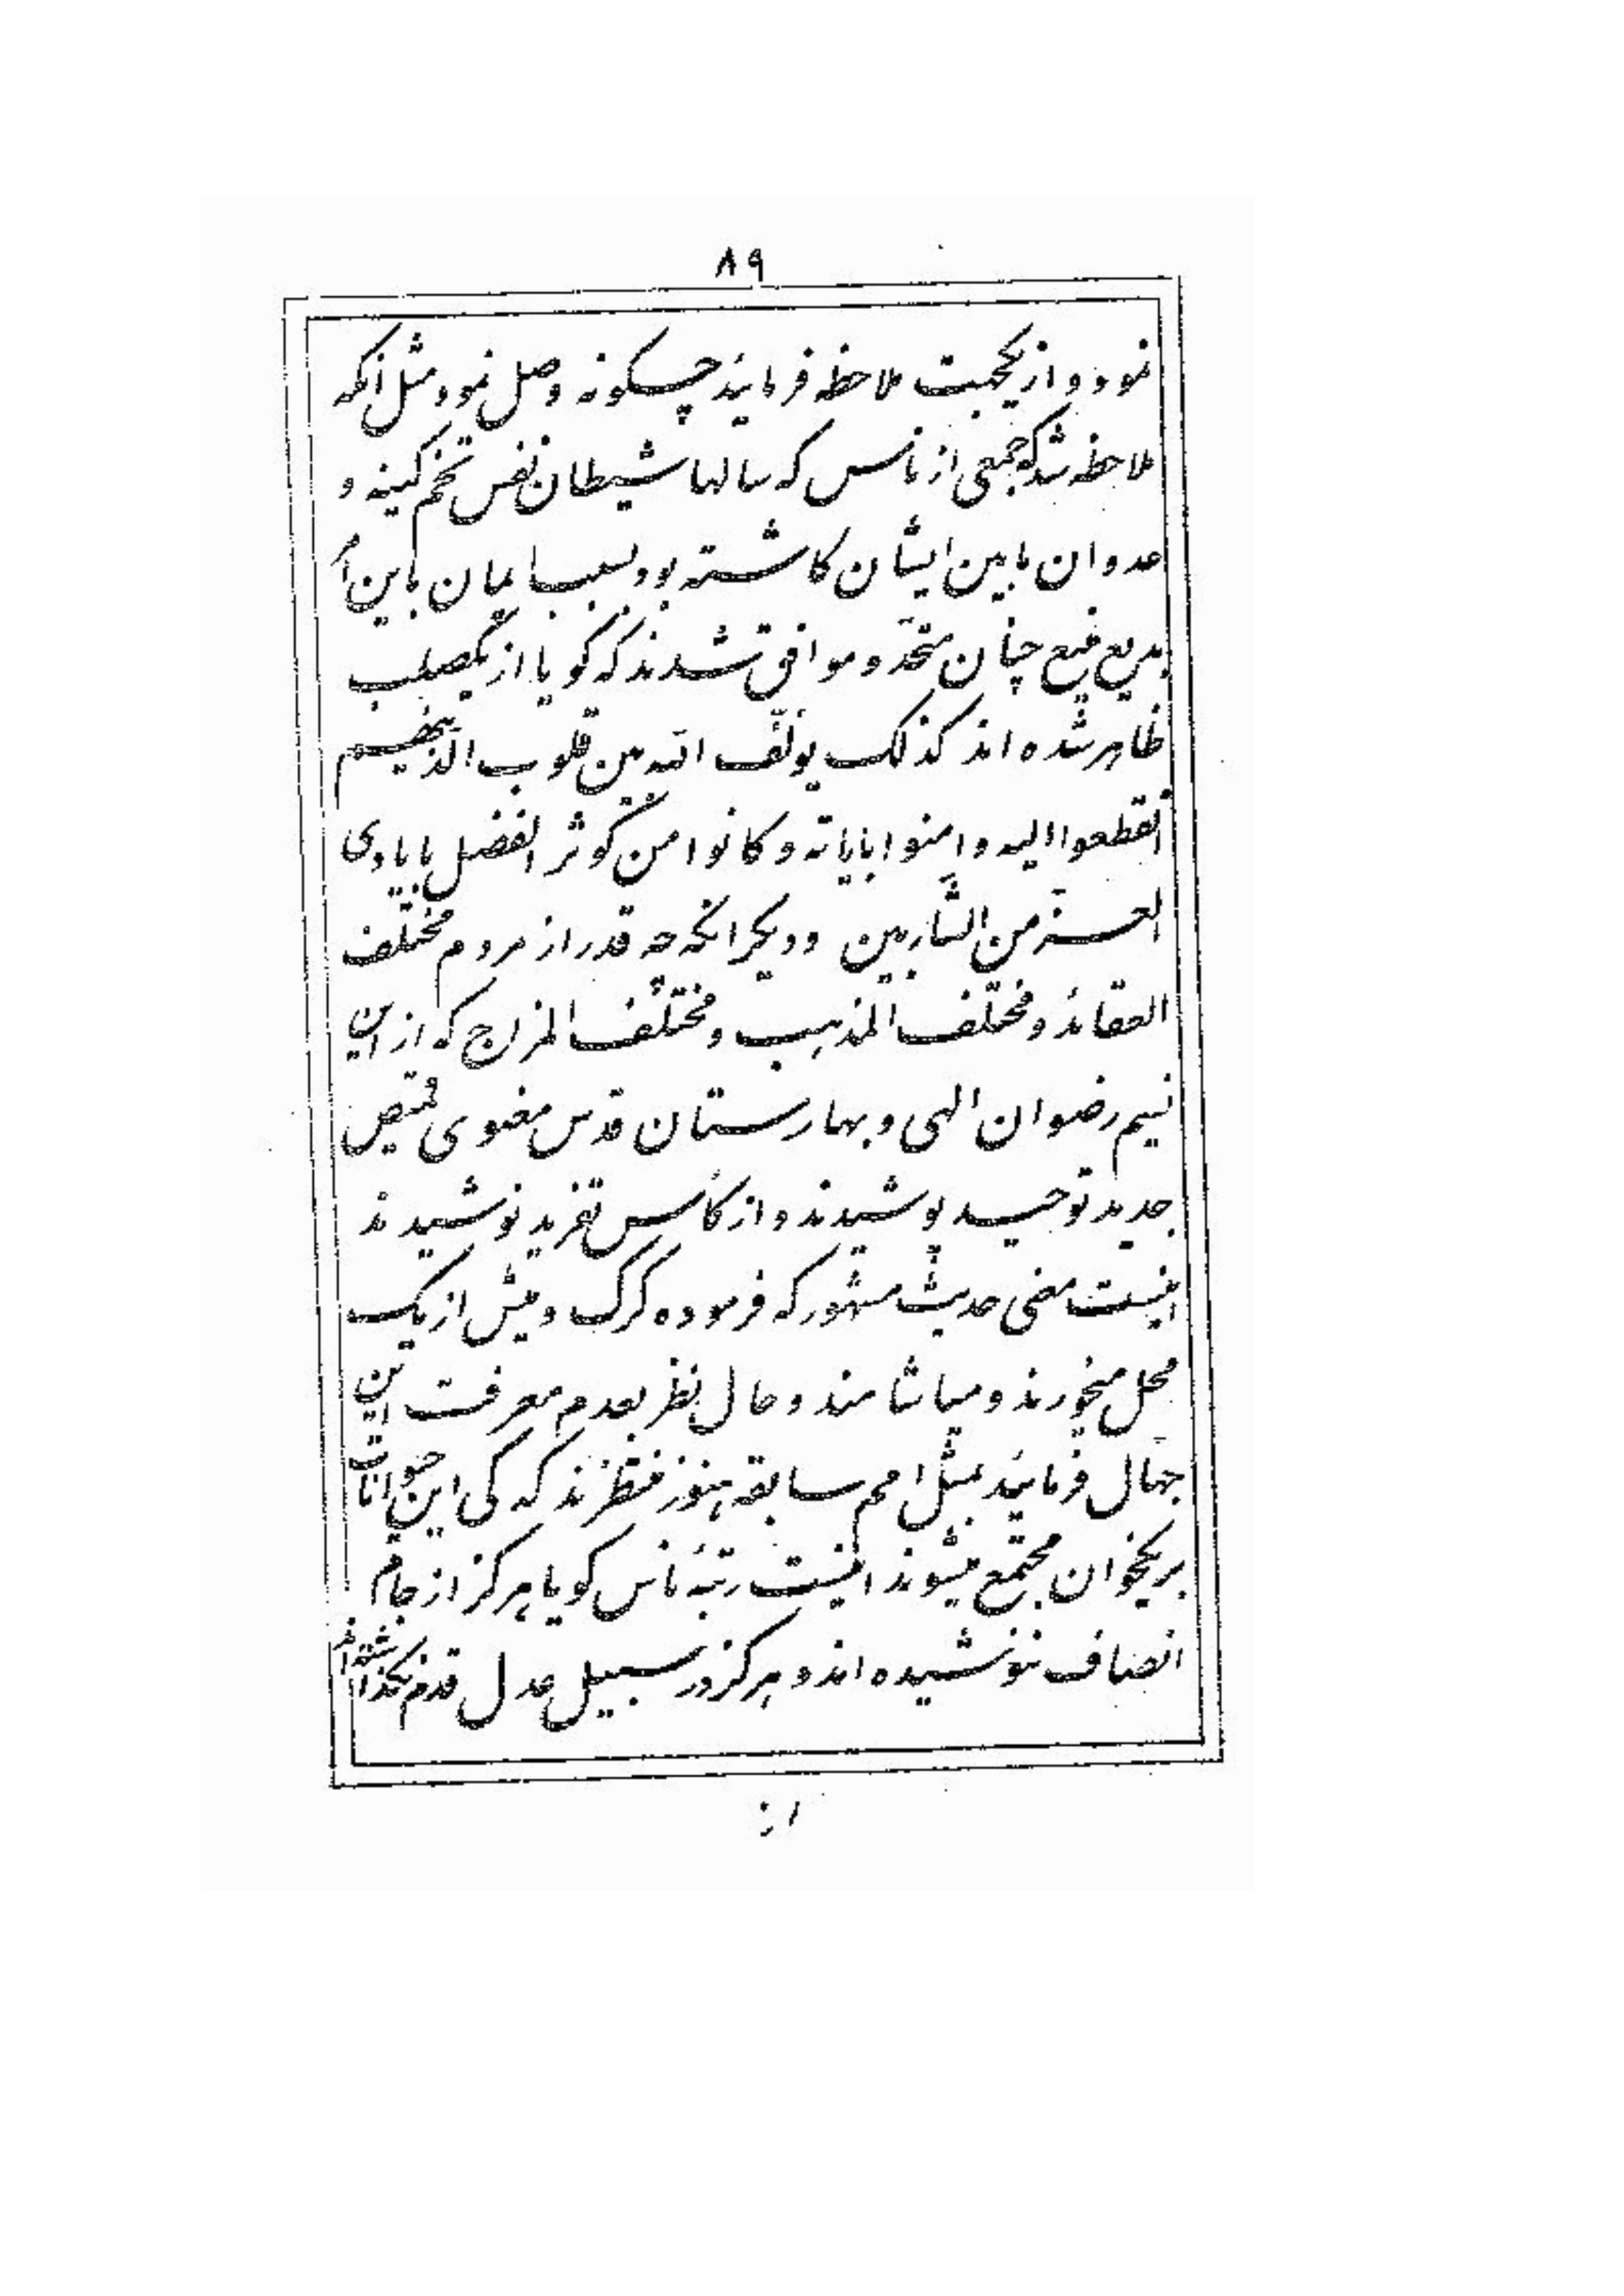 ۸۹
نمود و از یکجهت ملاحظه فرمائید چگونه وصل نمود مثل آنکه
ملاحظه شد که جمعی از ناس که سالها شیطان نفس تخم کینه و
عدوان مابین ایشان کاشته بود بسبب ایمان باین امر
بدیع منیع چنان متّحد و موافق شدند که گویا از یکصلب
ظاهر شده اند کذلک یؤلّف الله بین قلوب الّذینهم
انقطعوا الیه و امنوا بایاته و کانوا من کوثر الفضل بایادی
العزّ من الشّاربین و دیگر انکه چه قدر از مردم مختلف
العقائد و مختلف المذهب و مختلف المزاج که از این
نسیم رضوان الهی و بهارستان قدس معنوی قمیص
جدید توحید پوشیدند و از کأس تفرید نوشیدند
اینست معنی حدیث مشهور که فرموده گرگ و میش از یک
محل میخورند و میاشامند و حال نظر بعدم معرفت این
جهّال فرمائید بمثل امم سابقه هنوز منتظرند که کی این حیوانات
بر یکخوان مجتمع میشوند اینست رتبهٔ ناس گویا هرگز از جام
انصاف ننوشیده اند و هرگز در سبیل عدل قدم نگذاشته اند
از